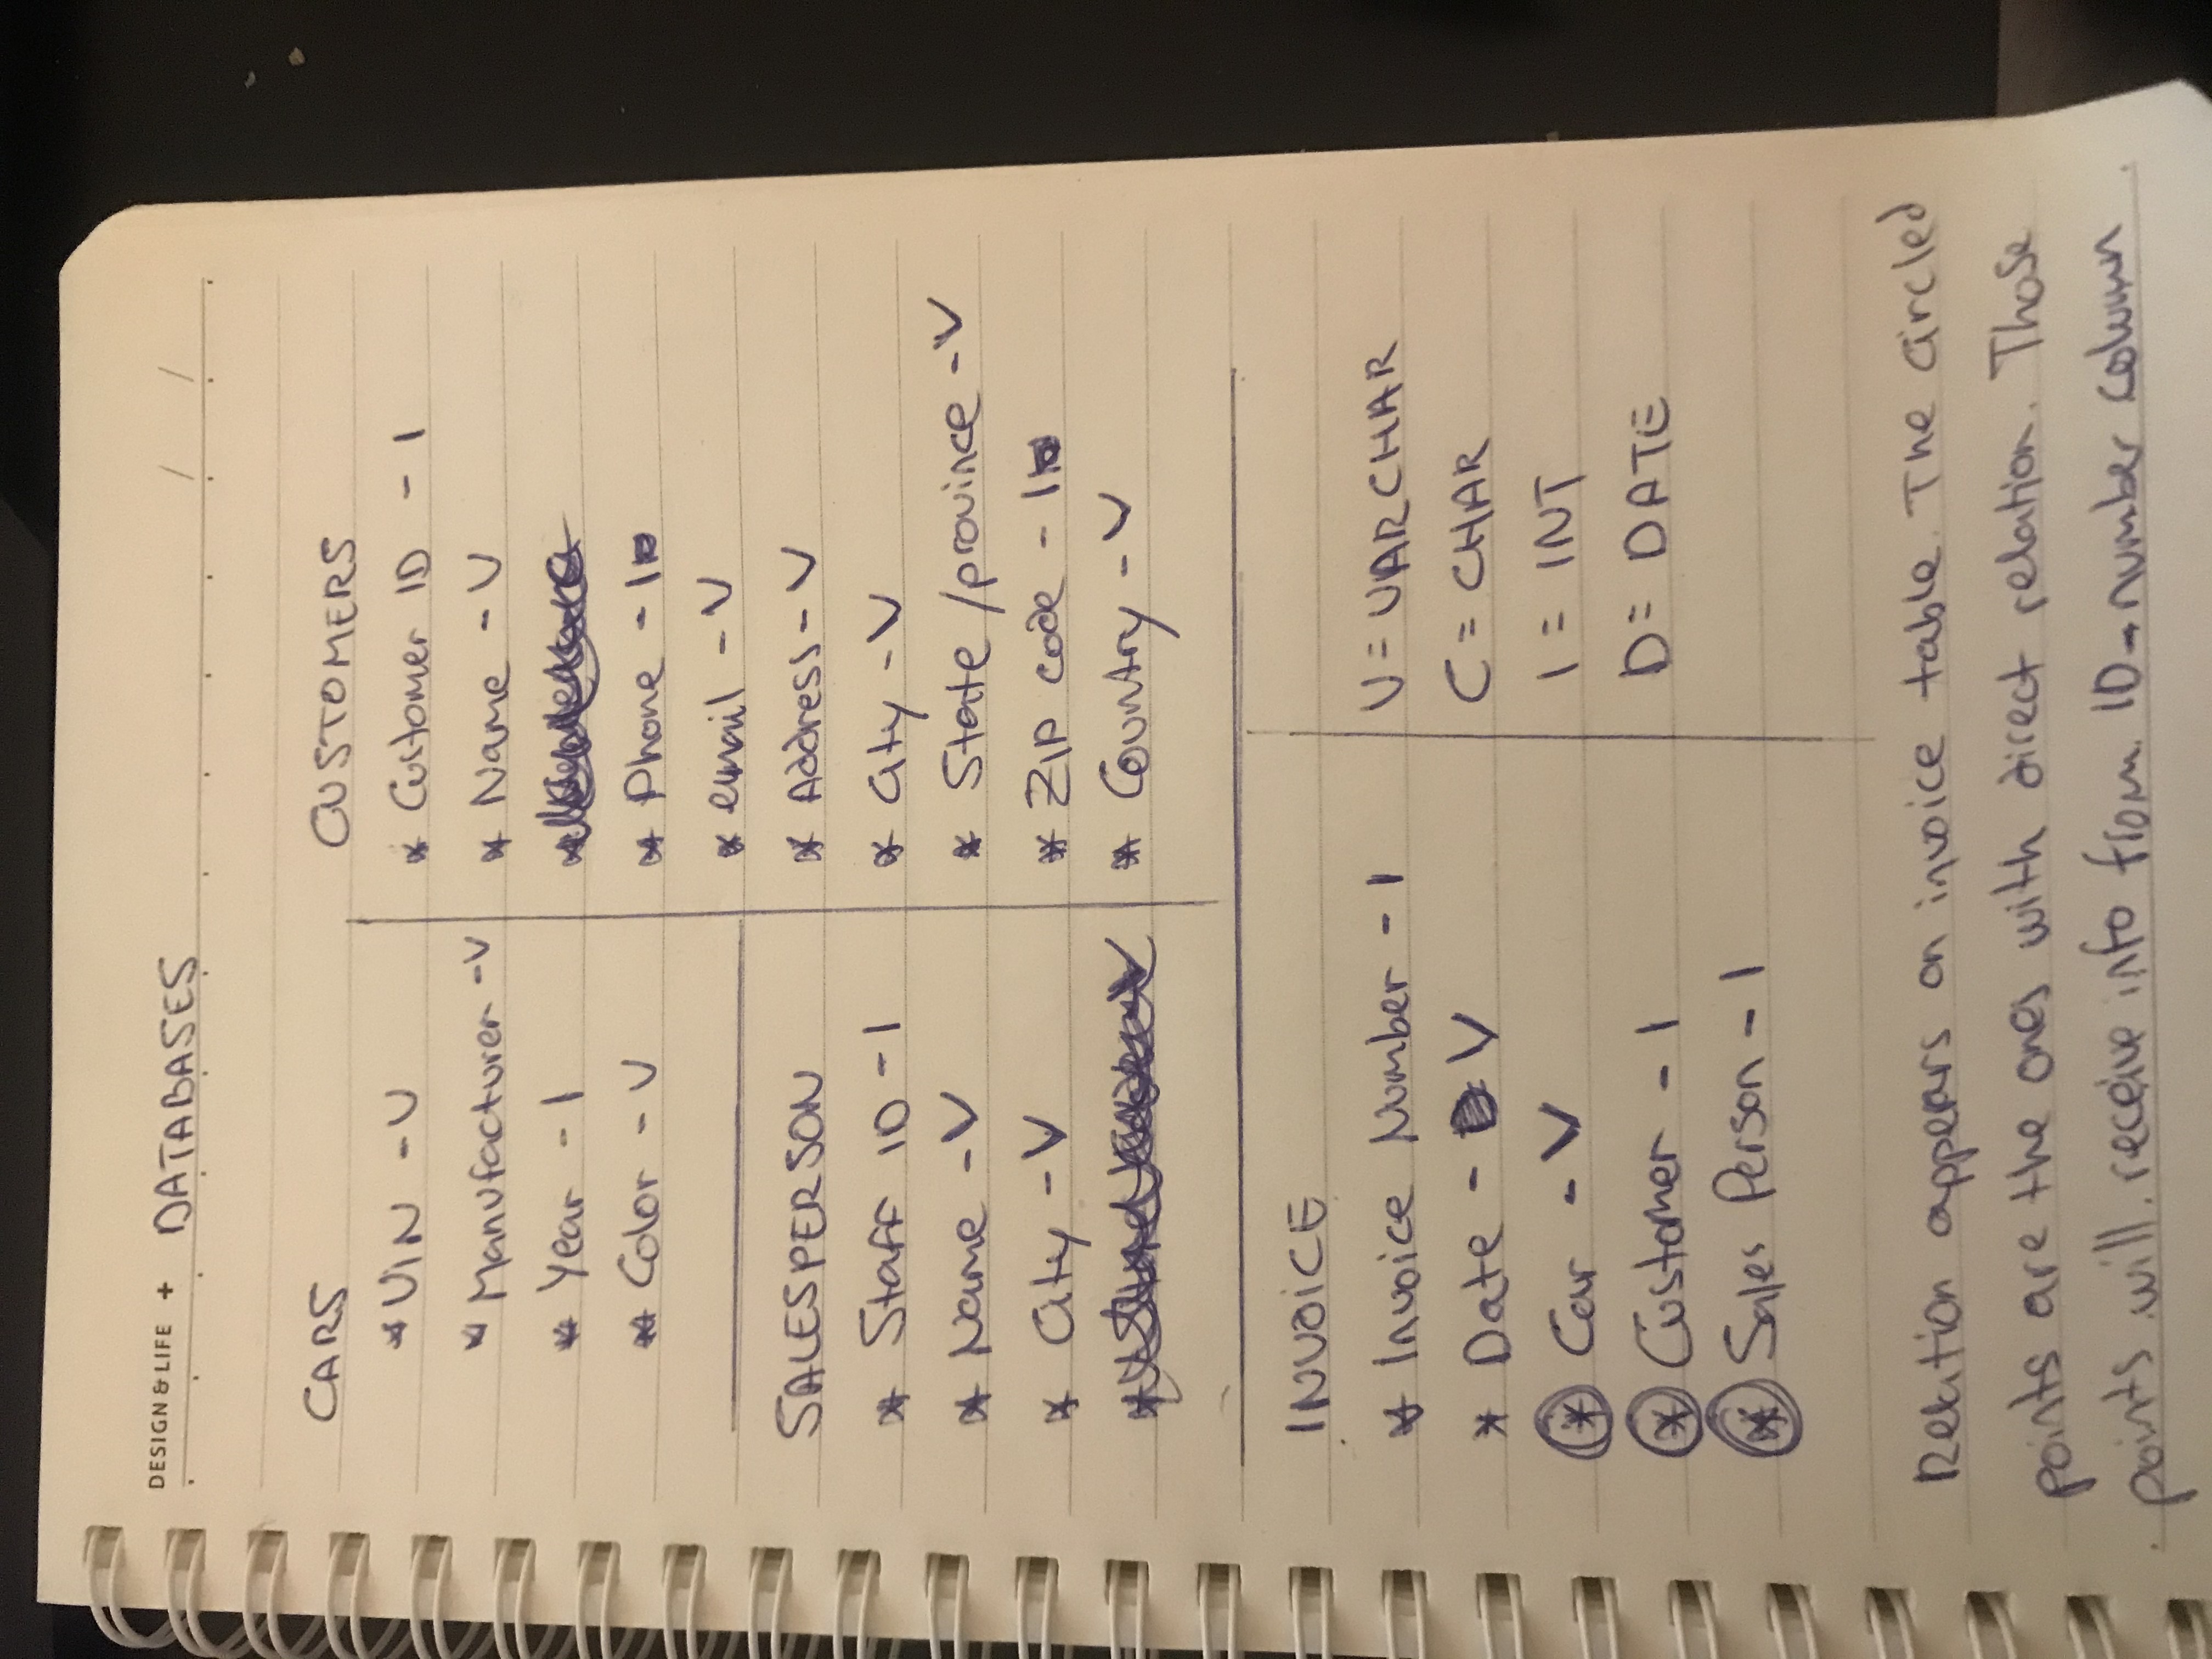 DESIGN & LIFE + DATABASES
/ /
CARS
* VIN - V
* Manufacturer - V
* Year - I
* Color - V
CUSTOMERS
* Customer ID - I
* Name - V
* Phone - I
* email - V
* Address - V
* City - V
* State/province - V
* ZIP code - I
* Country - V
SALESPERSON
* Staff ID - I
* Name - V
* City - V
INVOICE
* Invoice Number - I
* Date - V
* Car - V
* Customer - I
* Sales Person - I
V = VARCHAR
C = CHAR
I = INT
D = DATE
Relation appears on invoice table. The circled
points are the ones with direct relation. Those
points will receive info from ID-number column